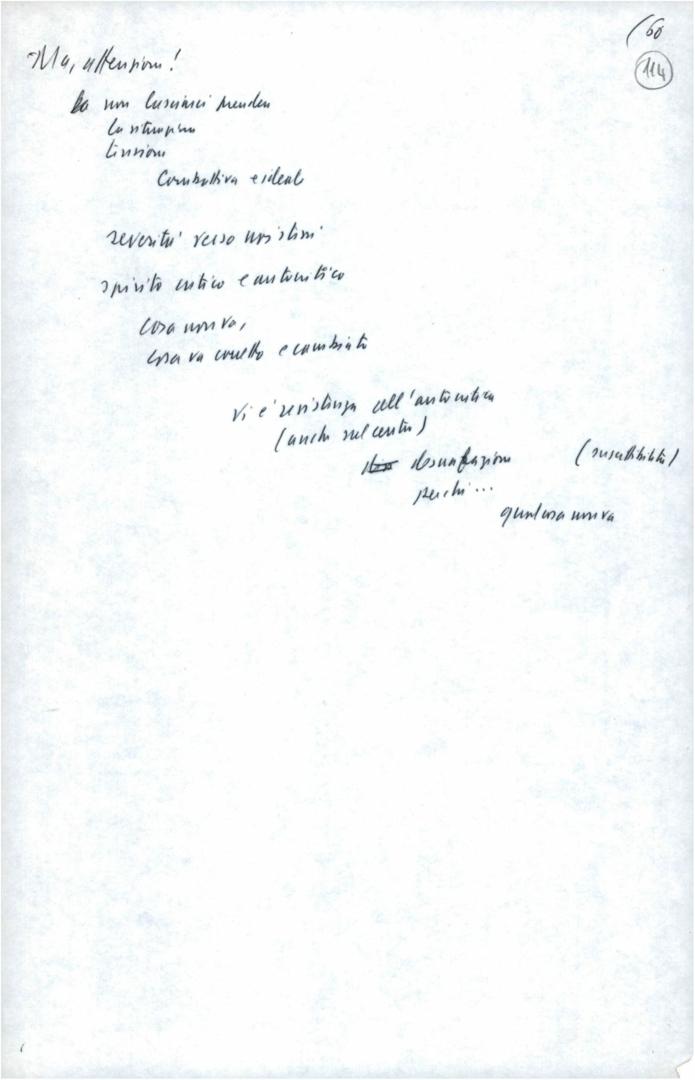 (60
114
Ma, attenzione!
non lasciarci prendere
la
tensione
combattiva e ideale
severità verso noi stessi
spirito critico e autocritico
cosa non va,
cosa va corretto e cambiato
Vi è resistenza all'autocritica
(anche nel centro)
(suscettibilità)
perché...
qualcosa non va